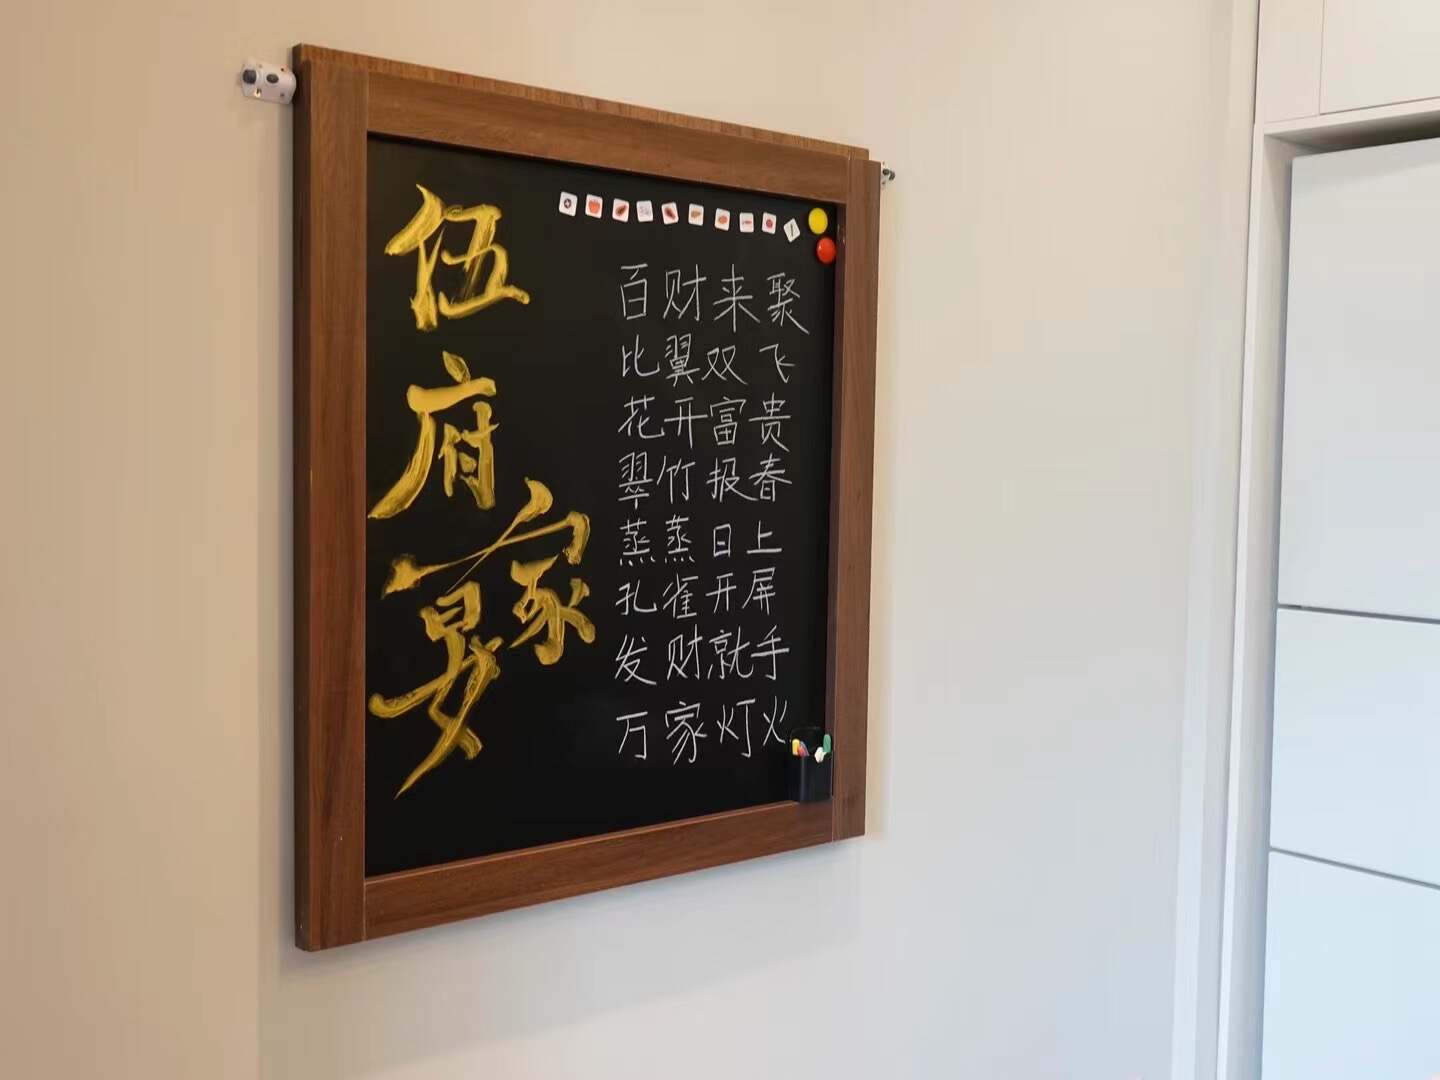 伍府家宴
百财来聚
比翼双飞
花开富贵
翠竹报春
蒸蒸日上
孔雀开屏
发财就手
万家灯火